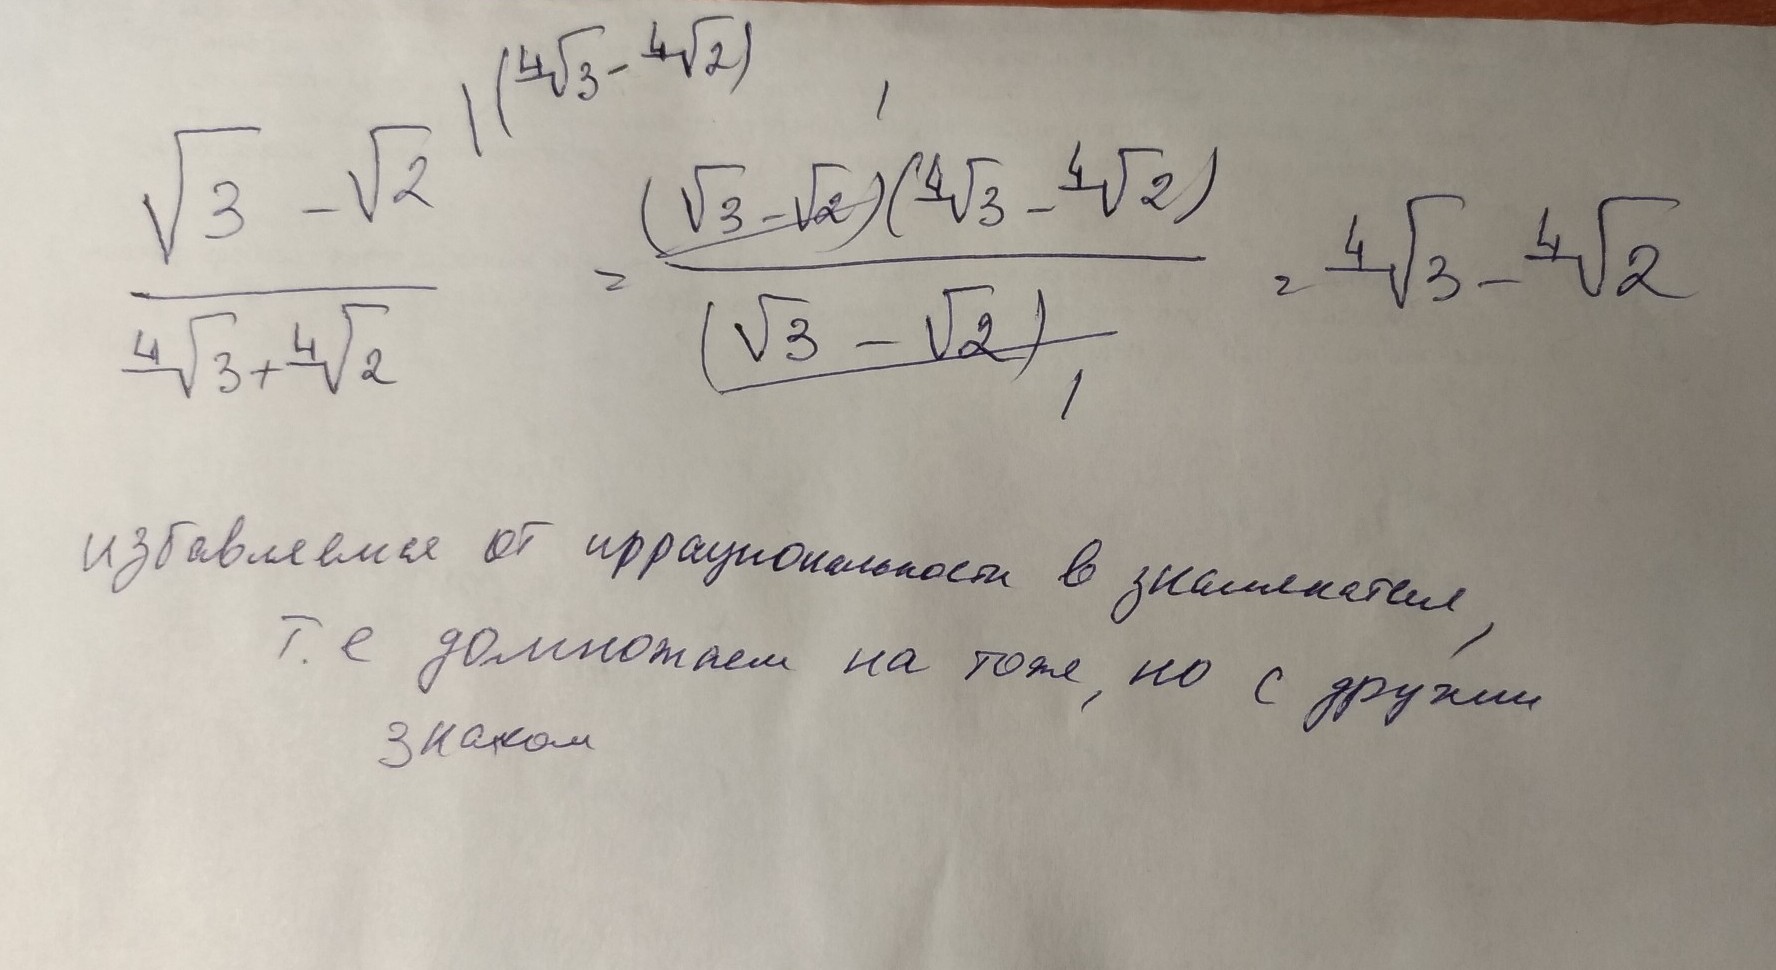 \ (⁴√3 - ⁴√2)
(√3 - √2) / (⁴√3 + ⁴√2) = (√3 - √2)(⁴√3 - ⁴√2) / (√3 - √2) = ⁴√3 - ⁴√2
избавляемся от иррациональности в знаменателе,
т.е домножаем на тоже, но с другим
знаком